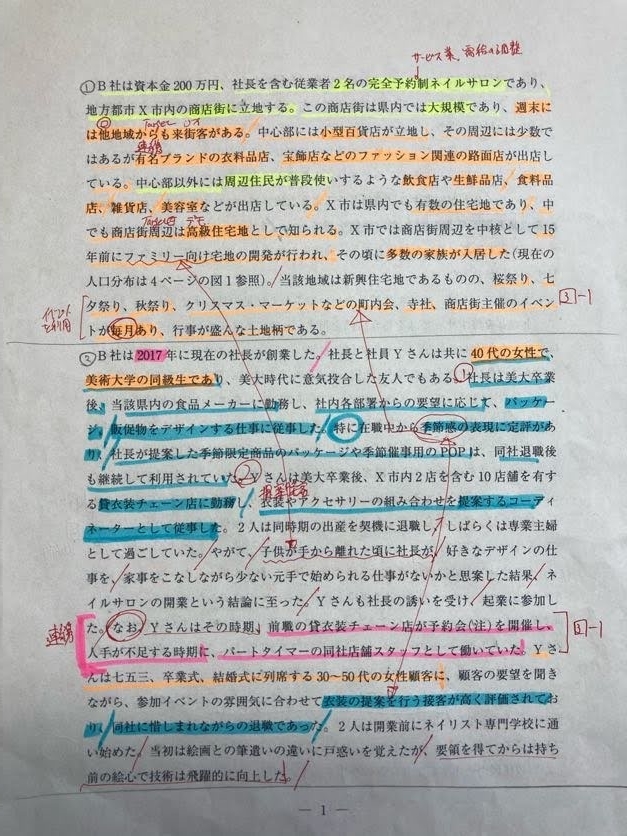 サービス業、需給の調整
①B社は資本金200万円、社長を含む従業者2名の完全予約制ネイルサロンであり、
地方都市X市内の商店街に立地する。この商店街は県内では大規模であり、週末に
は他地域からも来街客がある。中心部には小型百貨店が立地し、その周辺には少数で
はあるが有名ブランドの衣料品店、宝飾店などのファッション関連の路面店が出店し
ている。中心部以外には周辺住民が普段使いするような飲食店や生鮮品店、食料品
店、雑貨店、美容室などが出店している。X市は県内でも有数の住宅地であり、中
でも商店街周辺は高級住宅地として知られる。X市では商店街周辺を中核として15
年前にファミリー向け宅地の開発が行われ、その頃に多数の家族が入居した(現在の
人口分布は4ページの図1参照)。当該地域は新興住宅地であるものの、桜祭り、七
夕祭り、秋祭り、クリスマス・マーケットなどの町内会、寺社、商店街主催のイベン
トが毎月あり、行事が盛んな土地柄である。
3-1
②B社は2017年に現在の社長が創業した。社長と社員Yさんは共に40代の女性で、
美術大学の同級生であり、美大時代に意気投合した友人でもある。①社長は美大卒業
後、当該県内の食品メーカーに勤務し、社内各部署からの要望に応じて、パッケー
ジ、販促物をデザインする仕事に従事した。特に在職中から季節感の表現に定評があ
り、社長が提案した季節限定商品のパッケージや季節催事用のPOPは、同社退職後
も継続して利用されていた。②Yさんは美大卒業後、X市内2店を含む10店舗を有す
る貸衣装チェーン店に勤務し、衣装やアクセサリーの組み合わせを提案するコーディ
ネーターとして従事した。2人は同時期の出産を契機に退職し、しばらくは専業主婦
として過ごしていた。やがて、子供が手から離れた頃に社長が、好きなデザインの仕
事を、家事をこなしながら少ない元手で始められる仕事がないかと思案した結果、ネ
イルサロンの開業という結論に至った。Yさんも社長の誘いを受け、起業に参加し
た。なお、Yさんはその時期、前職の貸衣装チェーン店が予約会(注)を開催し、
人手が不足する時期に、パートタイマーの同社店舗スタッフとして働いていた。Yさ
んは七五三、卒業式、結婚式に列席する30~50代の女性顧客に、顧客の要望を聞き
ながら、参加イベントの雰囲気に合わせて衣装の提案を行う接客が高く評価されてお
り、同社に惜しまれながらの退職であった。2人は開業前にネイリスト専門学校に通
い始めた。当初は絵画との筆遣いの違いに戸惑いを覚えたが、要領を得てからは持ち
前の絵心で技術は飛躍的に向上した。
― 1 ―